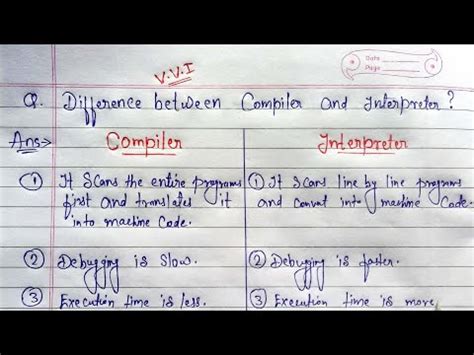 V.V.I
Date
Page
Q. Difference between Compiler and Interpreter?
Ans:->
Compiler
Interpreter
① It scans the entire programs
first and translates it
into machine Code.
① It scans line by line programs
and convert into machine Code.
② Debugging is slow.
② Debugging is faster.
③ Execution time is less.
③ Execution time is more